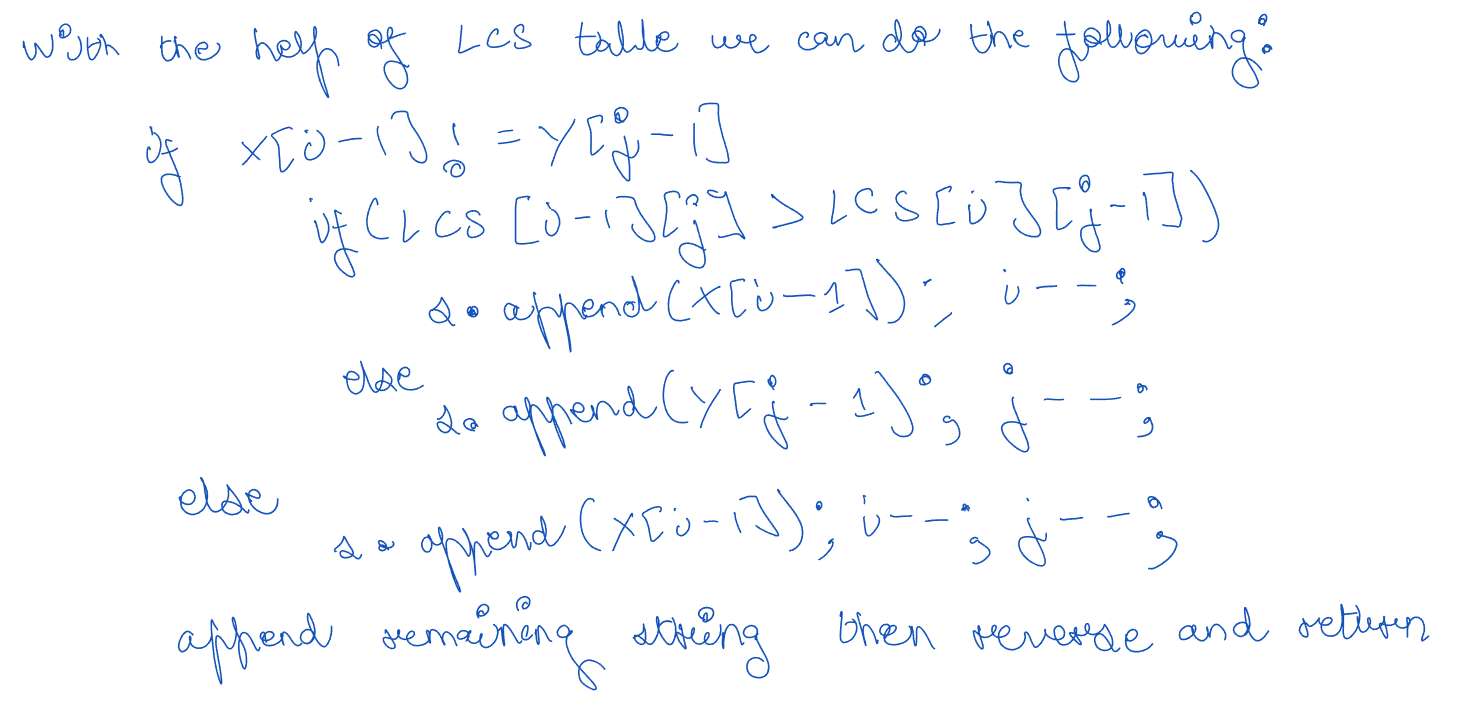 With the help of LCS table we can do the following:
if X[i-1] != Y[j-1]
if(LCS[i-1][j] > LCS[i][j-1])
s.append(X[i-1]); i--;
else
s.append(Y[j-1); j--;
else
s.append(X[i-1]); i--; j--;
append remaining string then reverse and return